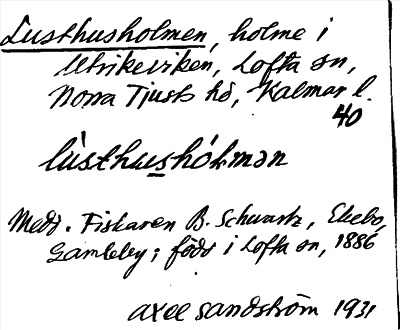 Lusthusholmen, holme i
Ulrikeviken, Lofta sn,
Norra Tjusts hd, Kalmar l.
40
lùsthushòlmən
Medd. Fiskaren B. Schwartz, Ekebo,
Gamleby; född i Lofta sn, 1886
Axel Sandström 1931